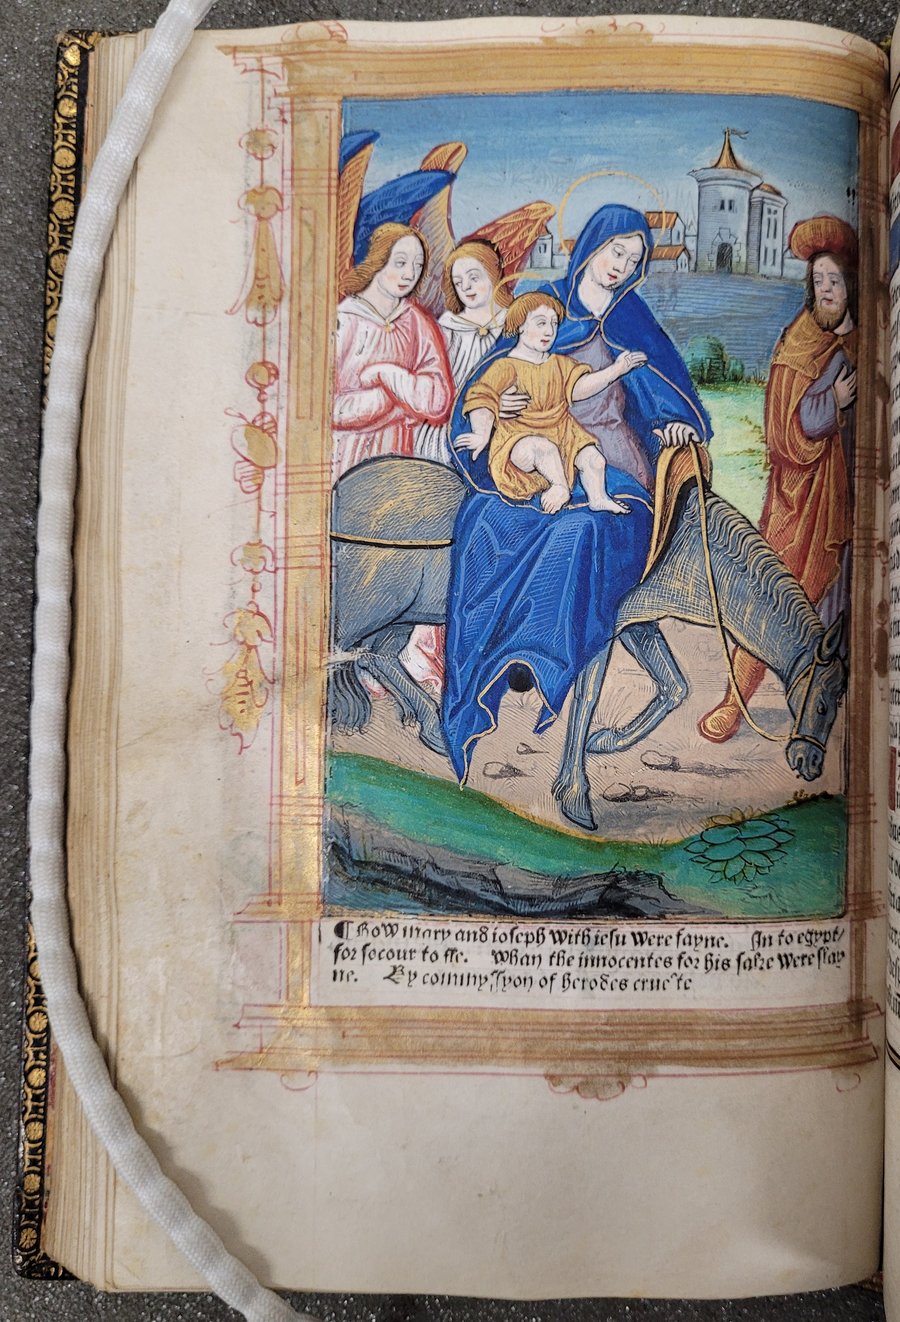 ¶ How mary and ioseph with iesu were fayne. In to egypt/
for socour to fle. Whan the innocentes for his sake were slay
ne. By commyssyon of herodes crueltе